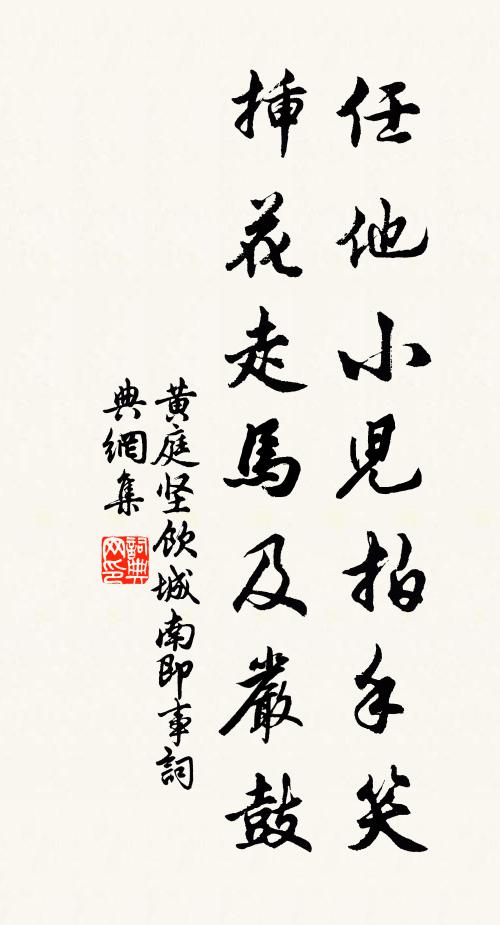 任他小兒拍手笑
揷花走馬及嚴鼓
黃庭坚飲城南即事詞
典網集
詞典网印